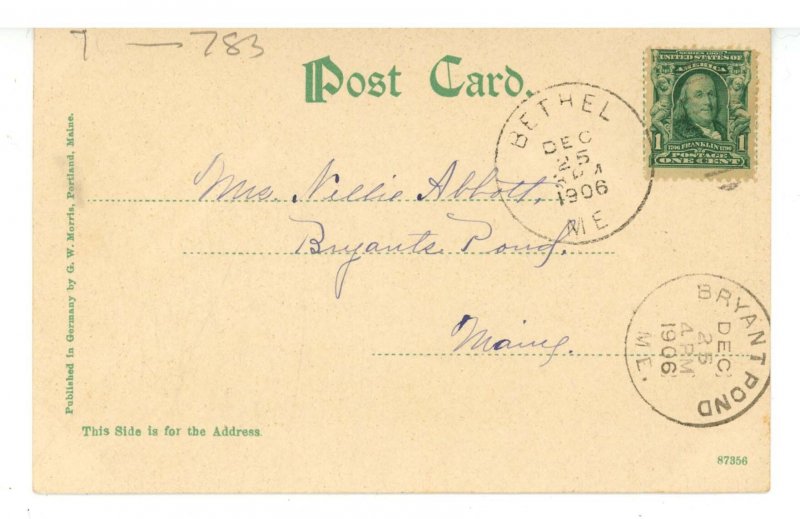 783
Post Card.
SERIES 1902
UNITED STATES OF
AMERICA
1 FRANKLIN 1
POSTAGE
ONE CENT
BETHEL
DEC
25
1906
ME
Mrs. Nellie Abbott,
Bryants Pond,
Maine.
BRYANT POND
DEC
25
4 PM
1906
ME.
Published in Germany by G. W. Morris, Portland, Maine.
This Side is for the Address.
87356